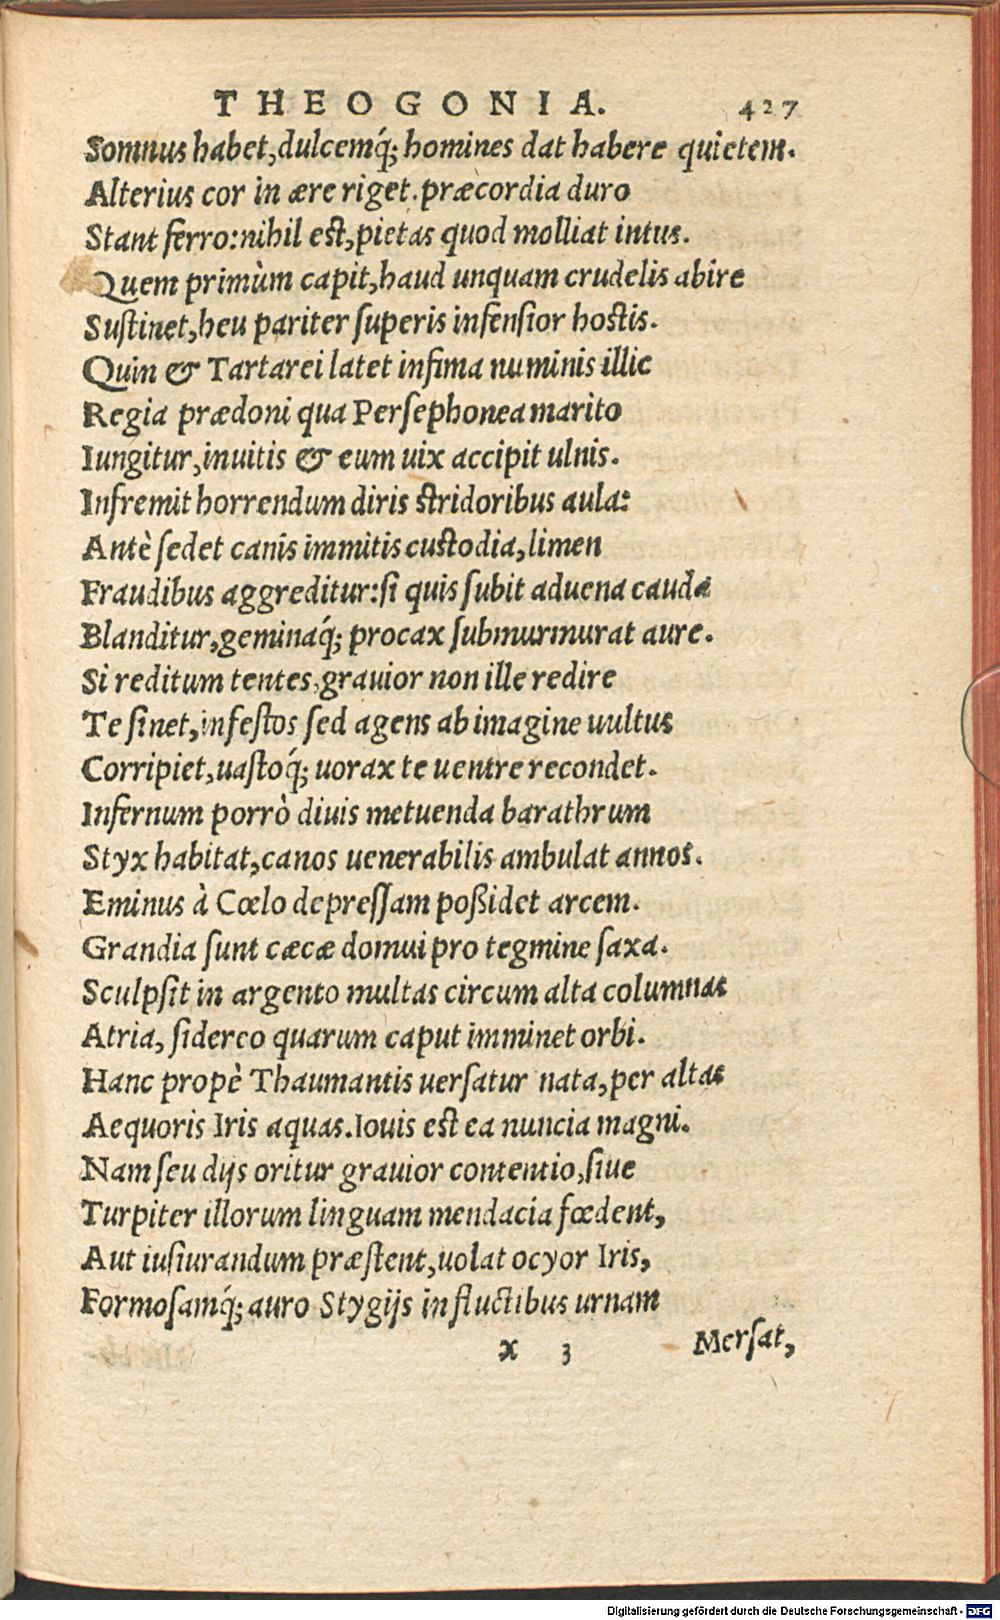 THEOGONIA. 427
Somnus habet, dulcemq́; homines dat habere quietem.
Alterius cor in ære riget. præcordia duro
Stant ferro: nihil est, pietas quod molliat intus.
Quem primùm capit, haud unquam crudelis abire
Sustinet, heu pariter superis infensior hostis.
Quin & Tartarei latet infima numinis illic
Regia prædoni qua Persephonea marito
Iungitur, inuitis & eum uix accipit ulnis.
Infremit horrendum diris stridoribus aula:
Antè sedet canis immitis custodia, limen
Fraudibus aggreditur: si quis subit aduena cauda
Blanditur, geminaq́; procax submurmurat aure.
Si reditum tentes, grauior non ille redire
Te sinet, infestos sed agens ab imagine uultus
Corripiet, uastoq́; uorax te uentre recondet.
Infernum porrò diuis metuenda barathrum
Styx habitat, canos uenerabilis ambulat annos.
Eminus à Cœlo depressam poßidet arcem.
Grandia sunt cæcæ domui pro tegmine saxa.
Sculpsit in argento multas circum alta columnas
Atria, sidereo quarum caput imminet orbi.
Hanc propè Thaumantis uersatur nata, per altas
Aequoris Iris aquas. Iouis est ea nuncia magni.
Nam seu dijs oritur grauior contentio, siue
Turpiter illorum linguam mendacia fœdent,
Aut iusiurandum præstent, uolat ocyor Iris,
Formosamq́; auro Stygijs in fluctibus urnam
x 3 Mersat,
Digitalisierung gefördert durch die Deutsche Forschungsgemeinschaft - DFG